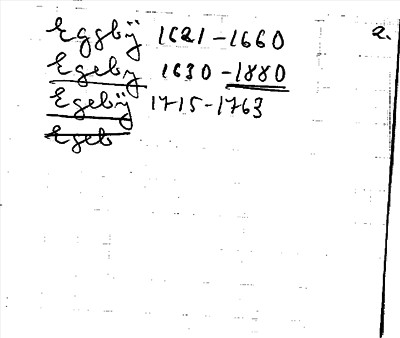 Eggbÿ 1621-1660 2.
Egeby 1630-1880
Egebÿ 1715-1763
Egeb